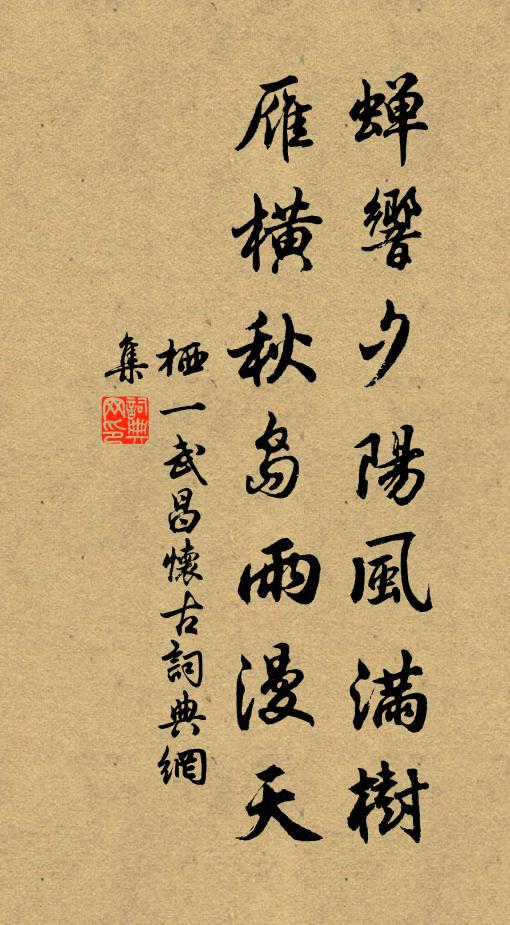 蝉響夕陽風滿樹
雁橫秋島雨漫天
栖一武昌懷古詞典網
集
詞典网印